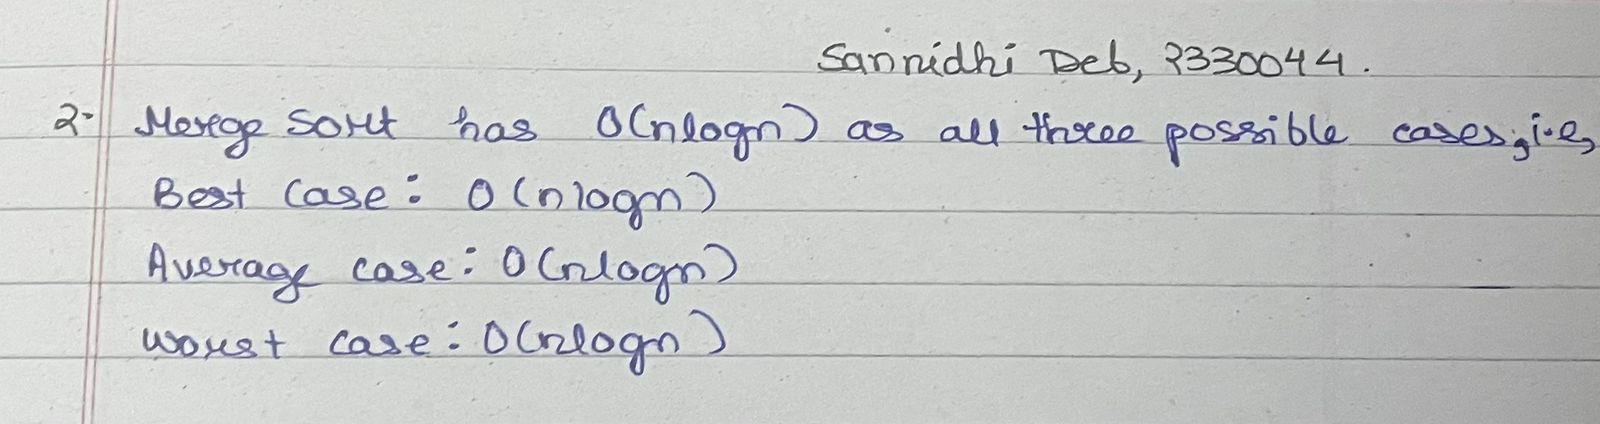 Sannidhi Deb, 2330044.
2. Merge Sort has O(nlogn) as all three possible cases, i.e,
Best Case: O(nlogn)
Average case: O(nlogn)
Worst case: O(nlogn)